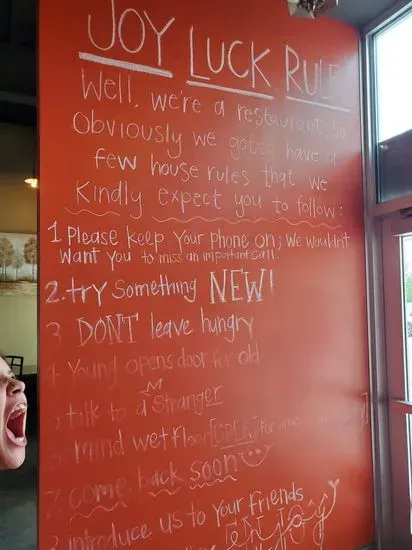 JOY LUCK RULE
Well, we're a restaurant, so
Obviously we gotta have a
few house rules that we
Kindly expect you to follow:
1 Please keep your phone on; we wouldn't
want you to miss an important call!
2. try Something NEW!
3 DON'T leave hungry
4 Young opens door for old
talk to a Stranger
mind wet floor for
7 come back soon
introduce us to your friends
enjoy